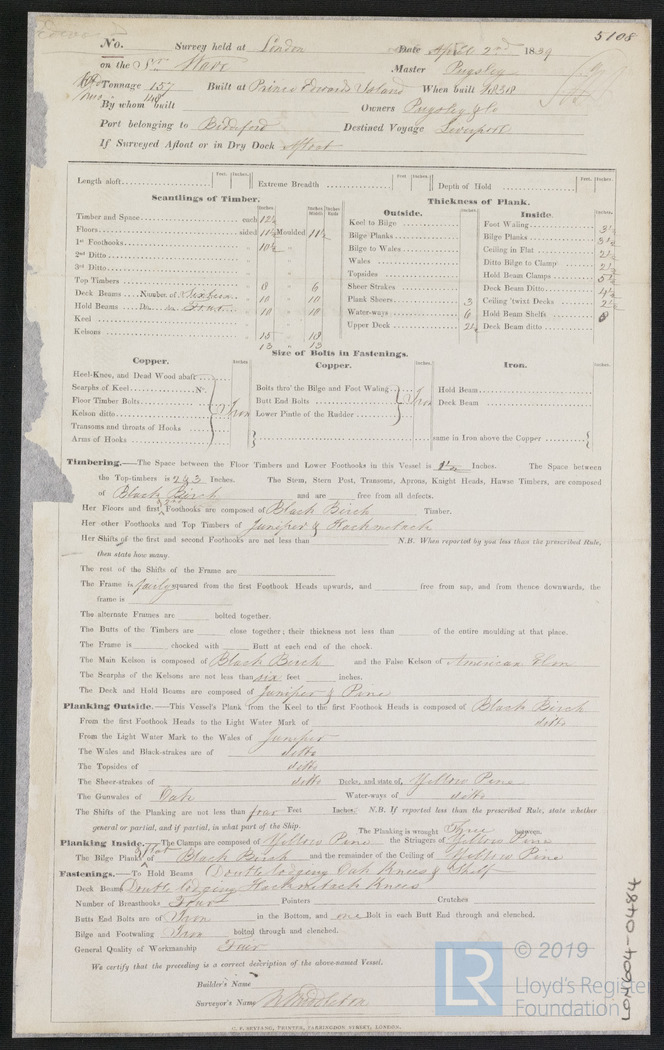 5108
No. Survey held at London Date April 2nd 1839
on the Sr Wave Master Pugsley
Tonnage 157 Built at Prince Edwards Island When built 1838
By whom built Owners Pugsley & Co
Port belonging to Bideford Destined Voyage Liverpool
If Surveyed Afloat or in Dry Dock Afloat
Feet. Inches. Feet. Inches. Feet. Inches.
Length aloft Extreme Breadth Depth of Hold
Scantlings of Timber. Thickness of Plank.
Outside. Inside.
Timber and Space each 12½ Keel to Bilge Foot Waling 3½
Floors sided 11½ Moulded 11½ Bilge Planks Bilge Planks 3½
1st Foothooks 10½ Bilge to Wales Ceiling in Flat 2½
2nd Ditto Wales Ditto Bilge to Clamp 2½
3rd Ditto Topsides Hold Beam Clamps 5½
Top Timbers 8 6 Sheer Strakes Deck Beam Ditto 4½
Deck Beams Number of 10 10 Plank Sheers 3 Ceiling 'twixt Decks 2½
Hold Beams Do. Do. Four 10 10 Water-ways 6 Hold Beam Shelfs 8
Keel Upper Deck 2½ Deck Beam ditto
Kelsons 15 18
13 13
Size of Bolts in Fastenings.
Copper. Copper. Iron.
Heel-Knee, and Dead Wood abaft
Scarphs of Keel No. Bolts thro' the Bilge and Foot Waling Hold Beam
Floor Timber Bolts Iron Butt End Bolts Iron Deck Beam
Kelson ditto Lower Pintle of the Rudder
Transoms and throats of Hooks
Arms of Hooks same in Iron above the Copper
Timbering.—The Space between the Floor Timbers and Lower Foothooks in this Vessel is 1½ Inches. The Space between
the Top-timbers is 2 & 3 Inches. The Stem, Stern Post, Transoms, Aprons, Knight Heads, Hawse Timbers, are composed
of Black Birch and are free from all defects.
Her Floors and first & 2nd Foothooks are composed of Black Birch Timber.
Her other Foothooks and Top Timbers of Juniper & Hackmetack
Her Shifts of the first and second Foothooks are not less than N.B. When reported by you less than the prescribed Rule,
then state how many.
The rest of the Shifts of the Frame are
The Frame is fairly squared from the first Foothook Heads upwards, and free from sap, and from thence downwards, the
frame is
The alternate Frames are bolted together.
The Butts of the Timbers are close together; their thickness not less than of the entire moulding at that place.
The Frame is chocked with Butt at each end of the chock.
The Main Kelson is composed of Black Birch and the False Kelson of American Elm
The Scarphs of the Kelsons are not less than six feet inches.
The Deck and Hold Beams are composed of Juniper & Pine
Planking Outside.—This Vessel's Plank from the Keel to the first Foothook Heads is composed of Black Birch
From the first Foothook Heads to the Light Water Mark of ditto
From the Light Water Mark to the Wales of Juniper
The Wales and Black-strakes are of ditto
The Topsides of ditto
The Sheer-strakes of ditto Decks, and state of, Yellow Pine
The Gunwales of Oak Water-ways of ditto
The Shifts of the Planking are not less than four Feet Inches. N.B. If reported less than the prescribed Rule, state whether
general or partial, and if partial, in what part of the Ship. The Planking is wrought Three between.
Planking Inside.—The Clamps are composed of Yellow Pine the Stringers of Yellow Pine
The Bilge Planks & flat of Black Birch and the remainder of the Ceiling of Yellow Pine
Fastenings.—To Hold Beams Double lodging Oak Knees & Shelf
Deck Beams Double lodging Hackmetack Knees
Number of Breasthooks Four Pointers Crutches
Butts End Bolts are of Iron in the Bottom, and one Bolt in each Butt End through and clenched.
Bilge and Footwaling Iron bolted through and clenched.
General Quality of Workmanship Fair
We certify that the preceding is a correct description of the above-named Vessel.
Builder's Name
Surveyor's Name W Middleton
C. F. SEYFANG, PRINTER, FARRINGDON STREET, LONDON.
LR © 2019
Lloyd's Register
Foundation
LON604-0484